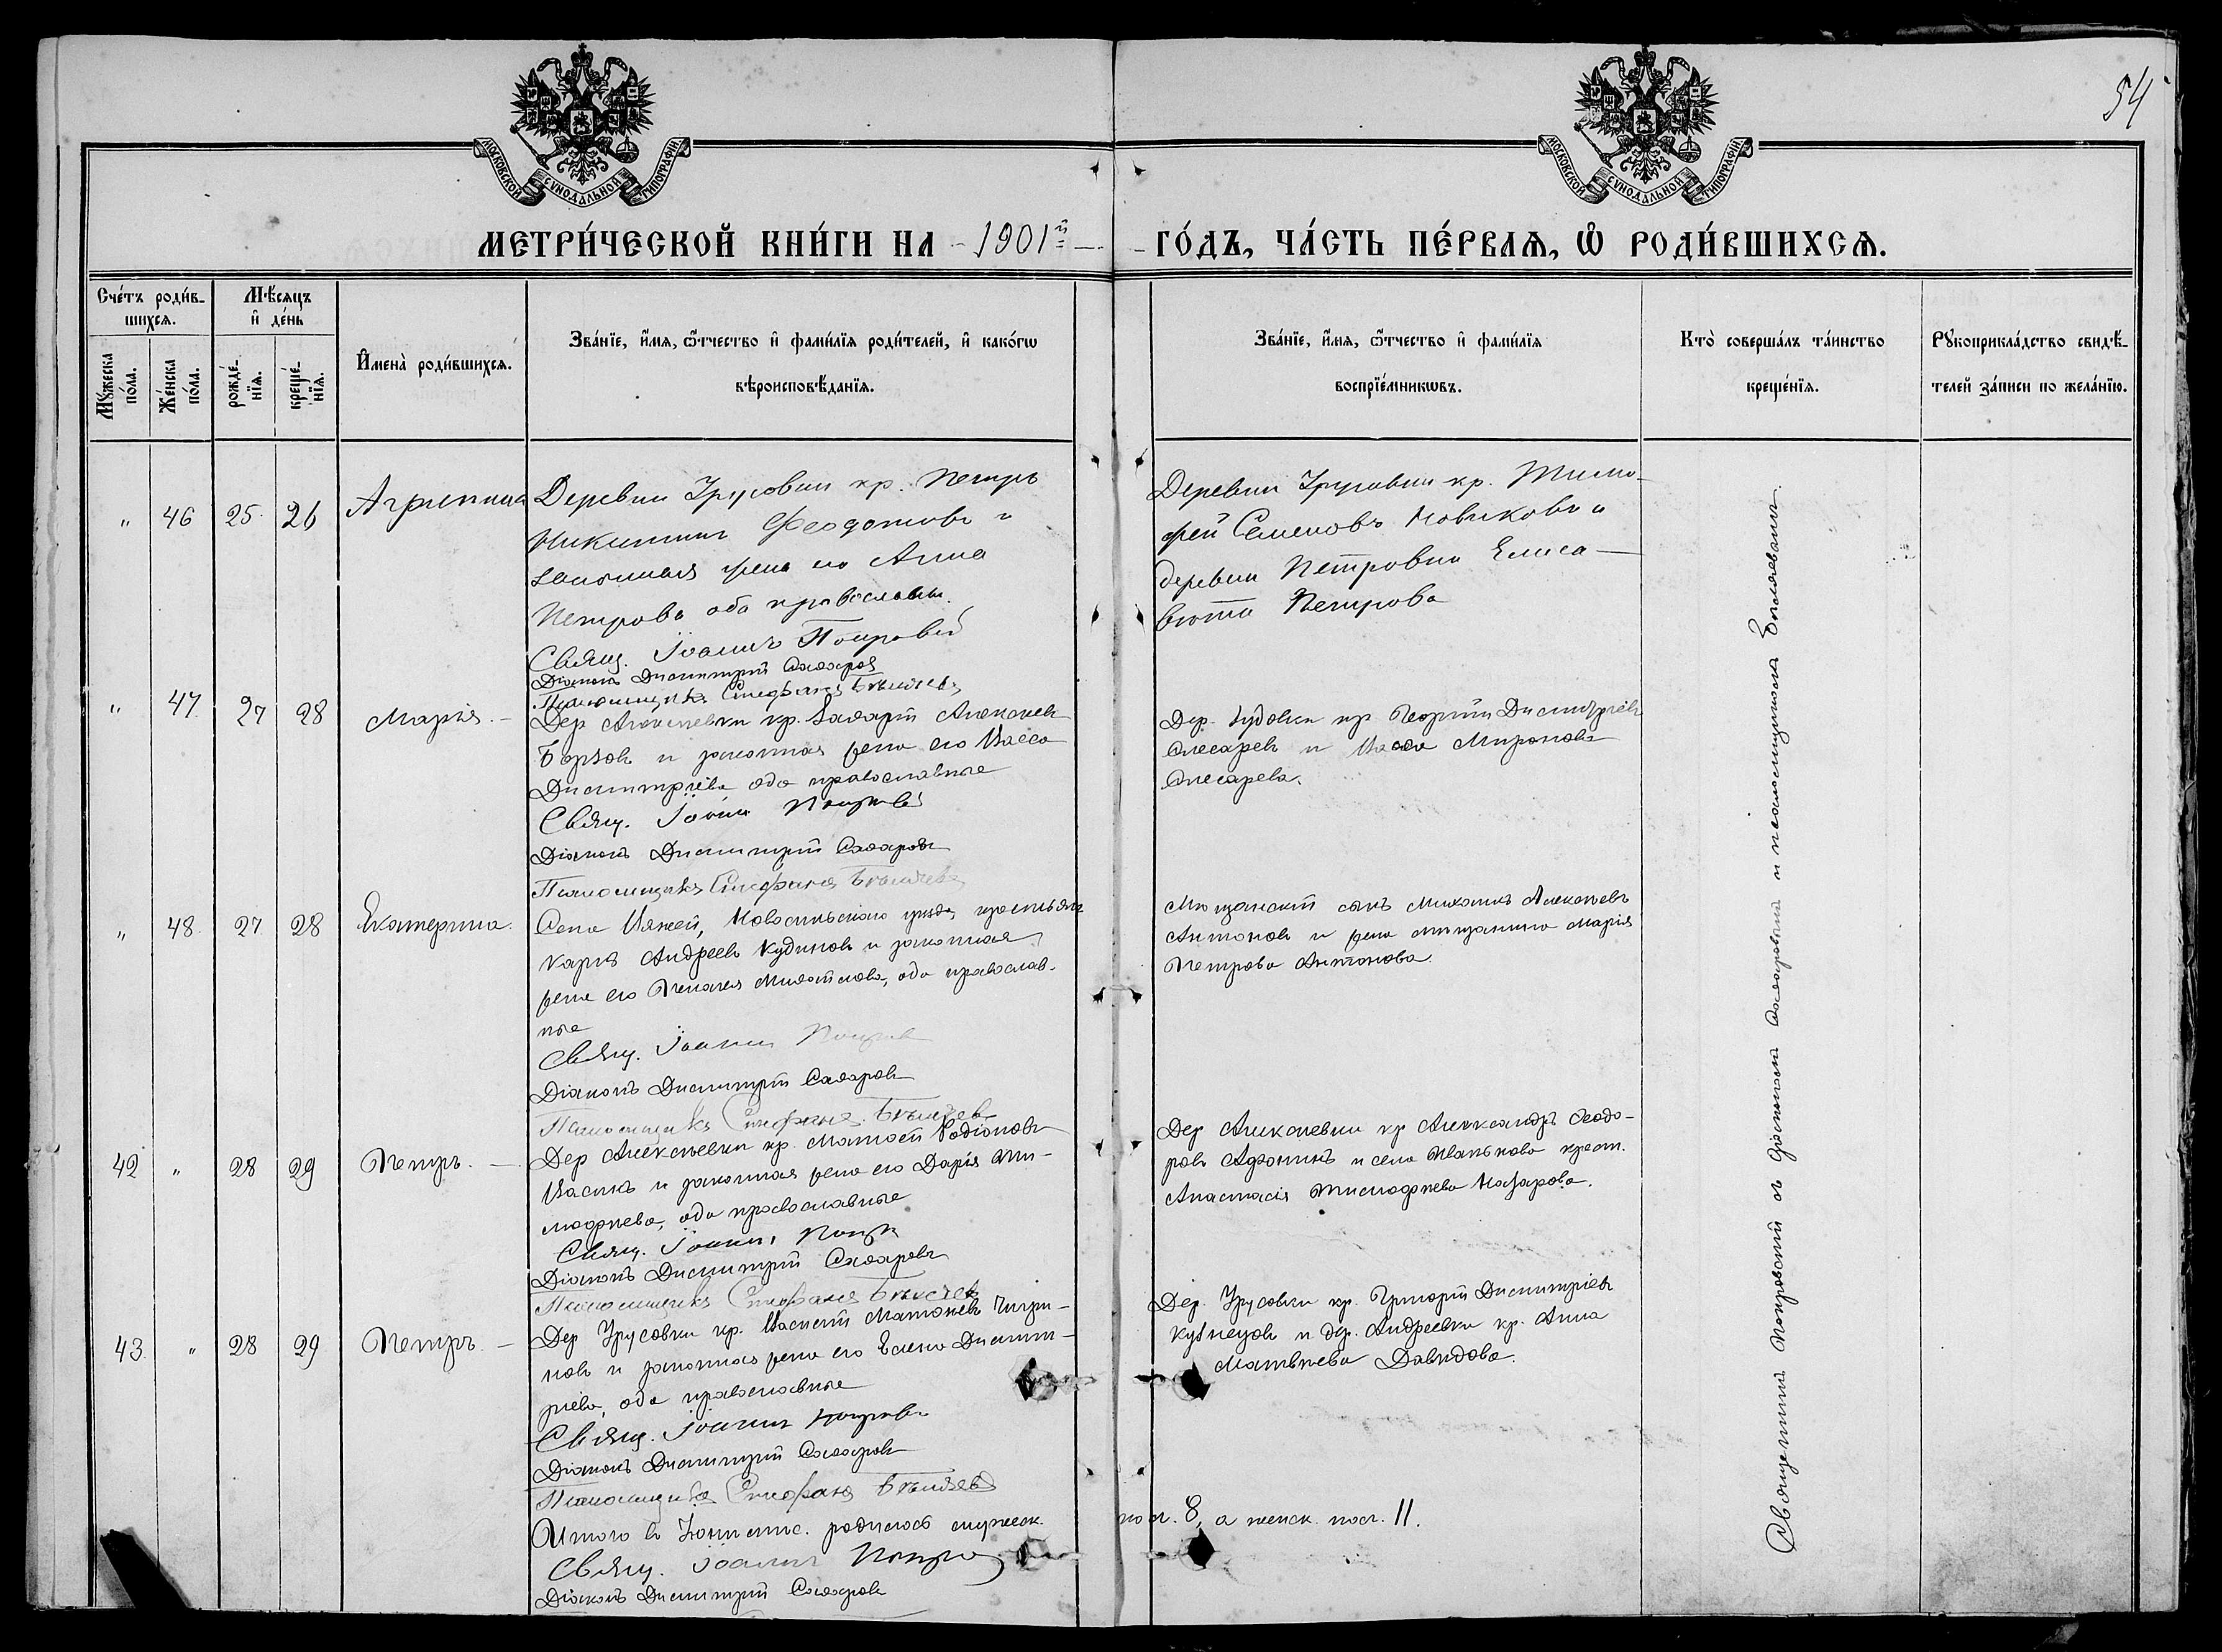 54
МОСКОВСКОЙ СѴНОДАЛЬНОЙ ТИПОГРАФІИ
МОСКОВСКОЙ СѴНОДАЛЬНОЙ ТИПОГРАФІИ
МЕТРИ́ЧЕСКОЙ КНИ́ГИ НА 1901й ГО́ДЪ, ЧА́СТЬ ПЕ́РВАѦ, Ѡ҆ РОДИ́ВШИХСѦ.
Сче́тъ роди́в-
шихсѧ.
Мѣ́сяцъ
и҆ де́нь
Мꙋ́жеска
по́ла.
Же́нска
по́ла.
рожде́-
нїѧ.
креще́-
нїѧ.
И҆мена̀ роди́вшихсѧ.
Зва́нїе, и҆́мѧ, ѻ҆́тчество и҆ фами́лїѧ роди́телей, и҆ како́гѡ
вѣроисповѣ́данїѧ.
Зва́нїе, и҆́мѧ, ѻ҆́тчество и҆ фами́лїѧ
воспрїе́мникѡвъ.
Кто̀ соверша́лъ та́инство
креще́нїѧ.
Рꙋкоприкла́дство свидѣ́-
телей за́писи по жела́нїю.
" 46 25 26 Агриппина
Деревни Трусовки кр. Петръ
Никитинъ Феодотовъ и
законная жена его Анна
Петрова оба православн.
Свящ. Іоаннъ Покровскій
Діаконъ Димитрій Сахаровъ
Псаломщикъ Стефанъ Бѣляевъ
Деревни Трусовки кр. Тимо-
фей Семеновъ Новиковъ и
деревни Петровки Елиса-
вета Петрова
" 47 27 28 Марія.
Дер Алексѣевки кр. Захарій Алексѣевъ
Борзовъ и законная жена его Васса
Димитріева оба православные
Свящ. Іоаннъ Покровскій
Діаконъ Димитрій Сахаровъ
Псаломщикъ Стефанъ Бѣляевъ
Дер. кр Георгій Димитріевъ
Слесаревъ и Васса Миронова
Слесарева.
" 48 27 28 Екатерина.
Села Вяжей, Новосильскаго уѣзда крестьян.
Карпъ Андреевъ Кудиновъ и законная
жена его Пелагея оба православ-
ные
Свящ. Іоаннъ
Діаконъ Димитрій Сахаровъ
Псаломщикъ Стефанъ Бѣляевъ
Мѣщанскій сынъ Михаилъ Алексѣевъ
Антоновъ и жена мѣщанина Марія
Петрова Антонова.
42 " 28 29 Петръ.
Дер Алексѣевки кр. Матѳей Родіоновъ
и законная жена его Дарія Ти-
моѳеева, оба православные
Свящ. Іоаннъ
Діаконъ Димитрій Сахаровъ
Псаломщикъ Стефанъ Бѣляевъ
Дер Алексѣевки кр Александръ Ѳеодо-
ровъ Аѳонинъ и села Иванькова крест.
Анастасія Тимоѳеева Назарова.
43. " 28 29 Петръ.
Дер Трусовки кр. Василій Матѳеевъ
новъ и законная жена его Елена Димит-
ріева, оба православные
Свящ. Іоаннъ Покровскій
Діаконъ Димитрій Сахаровъ
Псаломщикъ Стефанъ Бѣляевъ
Дер. Трусовки кр. Григорій Димитріевъ
Кузнецовъ и дер. Андреевки кр. Анна
Матвѣева Давидова.
Итого въ Іюнѣ мѣс. родилось мужеск. пол. 8, а женск. пол. 11.
Свящ. Іоаннъ
Діаконъ Димитрій Сахаровъ
Священникъ Покровскій съ діакономъ Сахаровымъ и псаломщикомъ Бѣляевымъ.